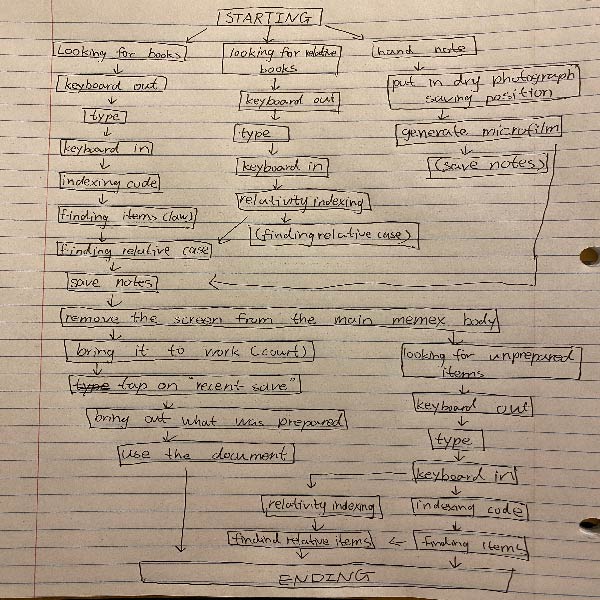 STARTING
Looking for books
keyboard out
type
keyboard in
indexing code
finding items (law)
finding relative case
save notes
looking for relative
books
keyboard out
type
keyboard in
relativity indexing
(finding relative case)
hand note
put in dry photograph
saving position
generate microfilm
(save notes)
remove the screen from the main memex body
bring it to work (court)
type tap on "recent save"
bring out what was prepared
use the document
looking for unprepared
items
keyboard out
type
keyboard in
relativity indexing
indexing code
findind relative items
finding items
ENDING